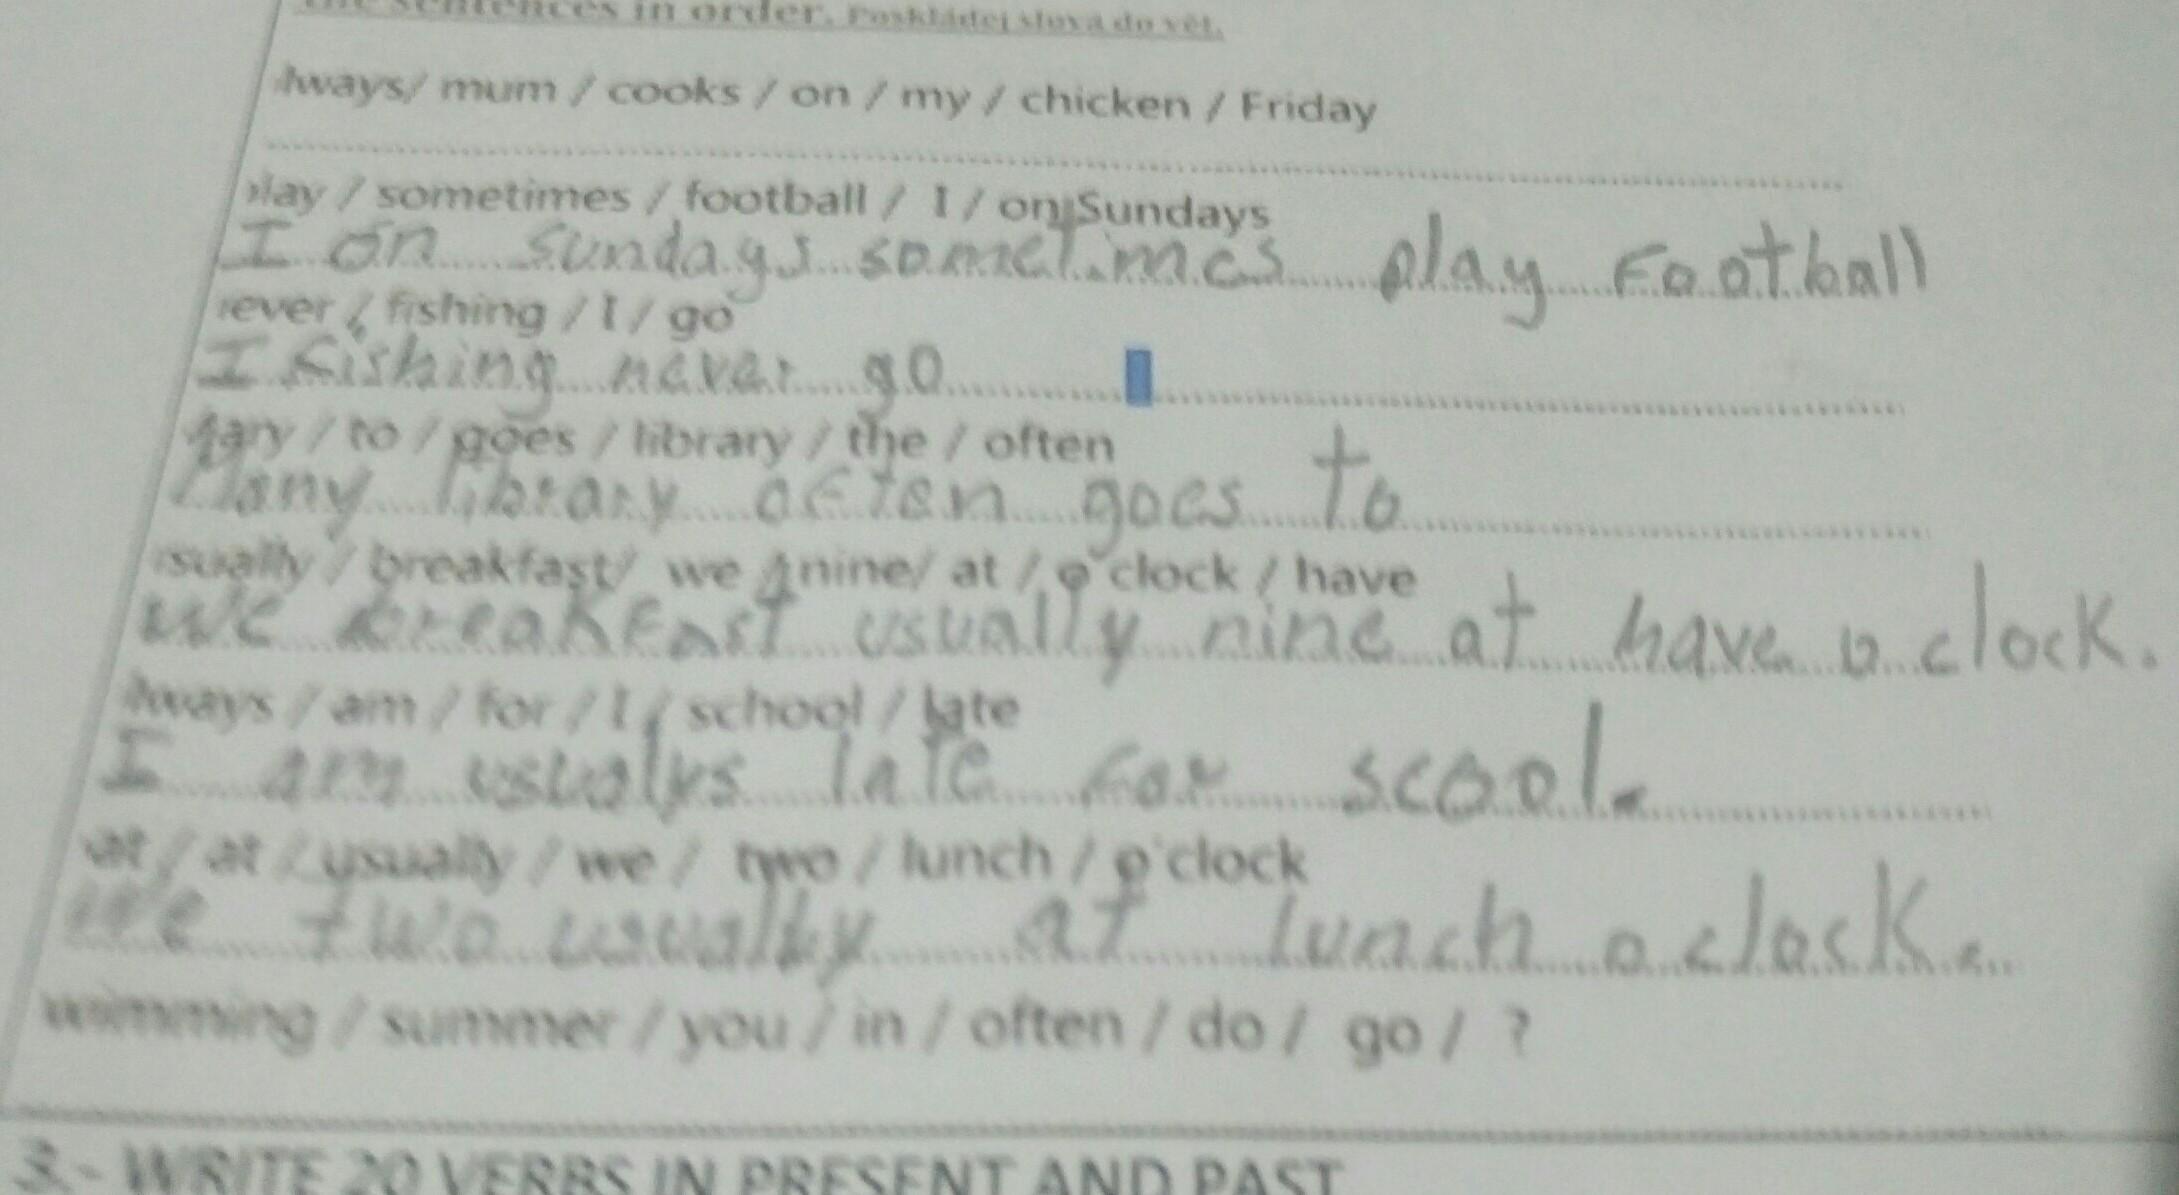 the sentences in order. Poskládej slova do vět.
lways/ mum / cooks / on / my / chicken / Friday
lay / sometimes / football / I / on Sundays
I on sundays sometimes play Football
ever / fishing / I / go
I Fishing never go
ary / to / goes / library / the / often
library often goes to
sually / breakfast/ we / nine/ at / o'clock / have
we breakFast usually nine at have o clock.
lways / am / for / I / school / late
I am usualys late For scool.
at / at / usually / we / two / lunch / o'clock
we two usually at lunch o clock.
wimming / summer / you / in / often / do / go / ?
3.- WRITE 20 VERBS IN PRESENT AND PAST